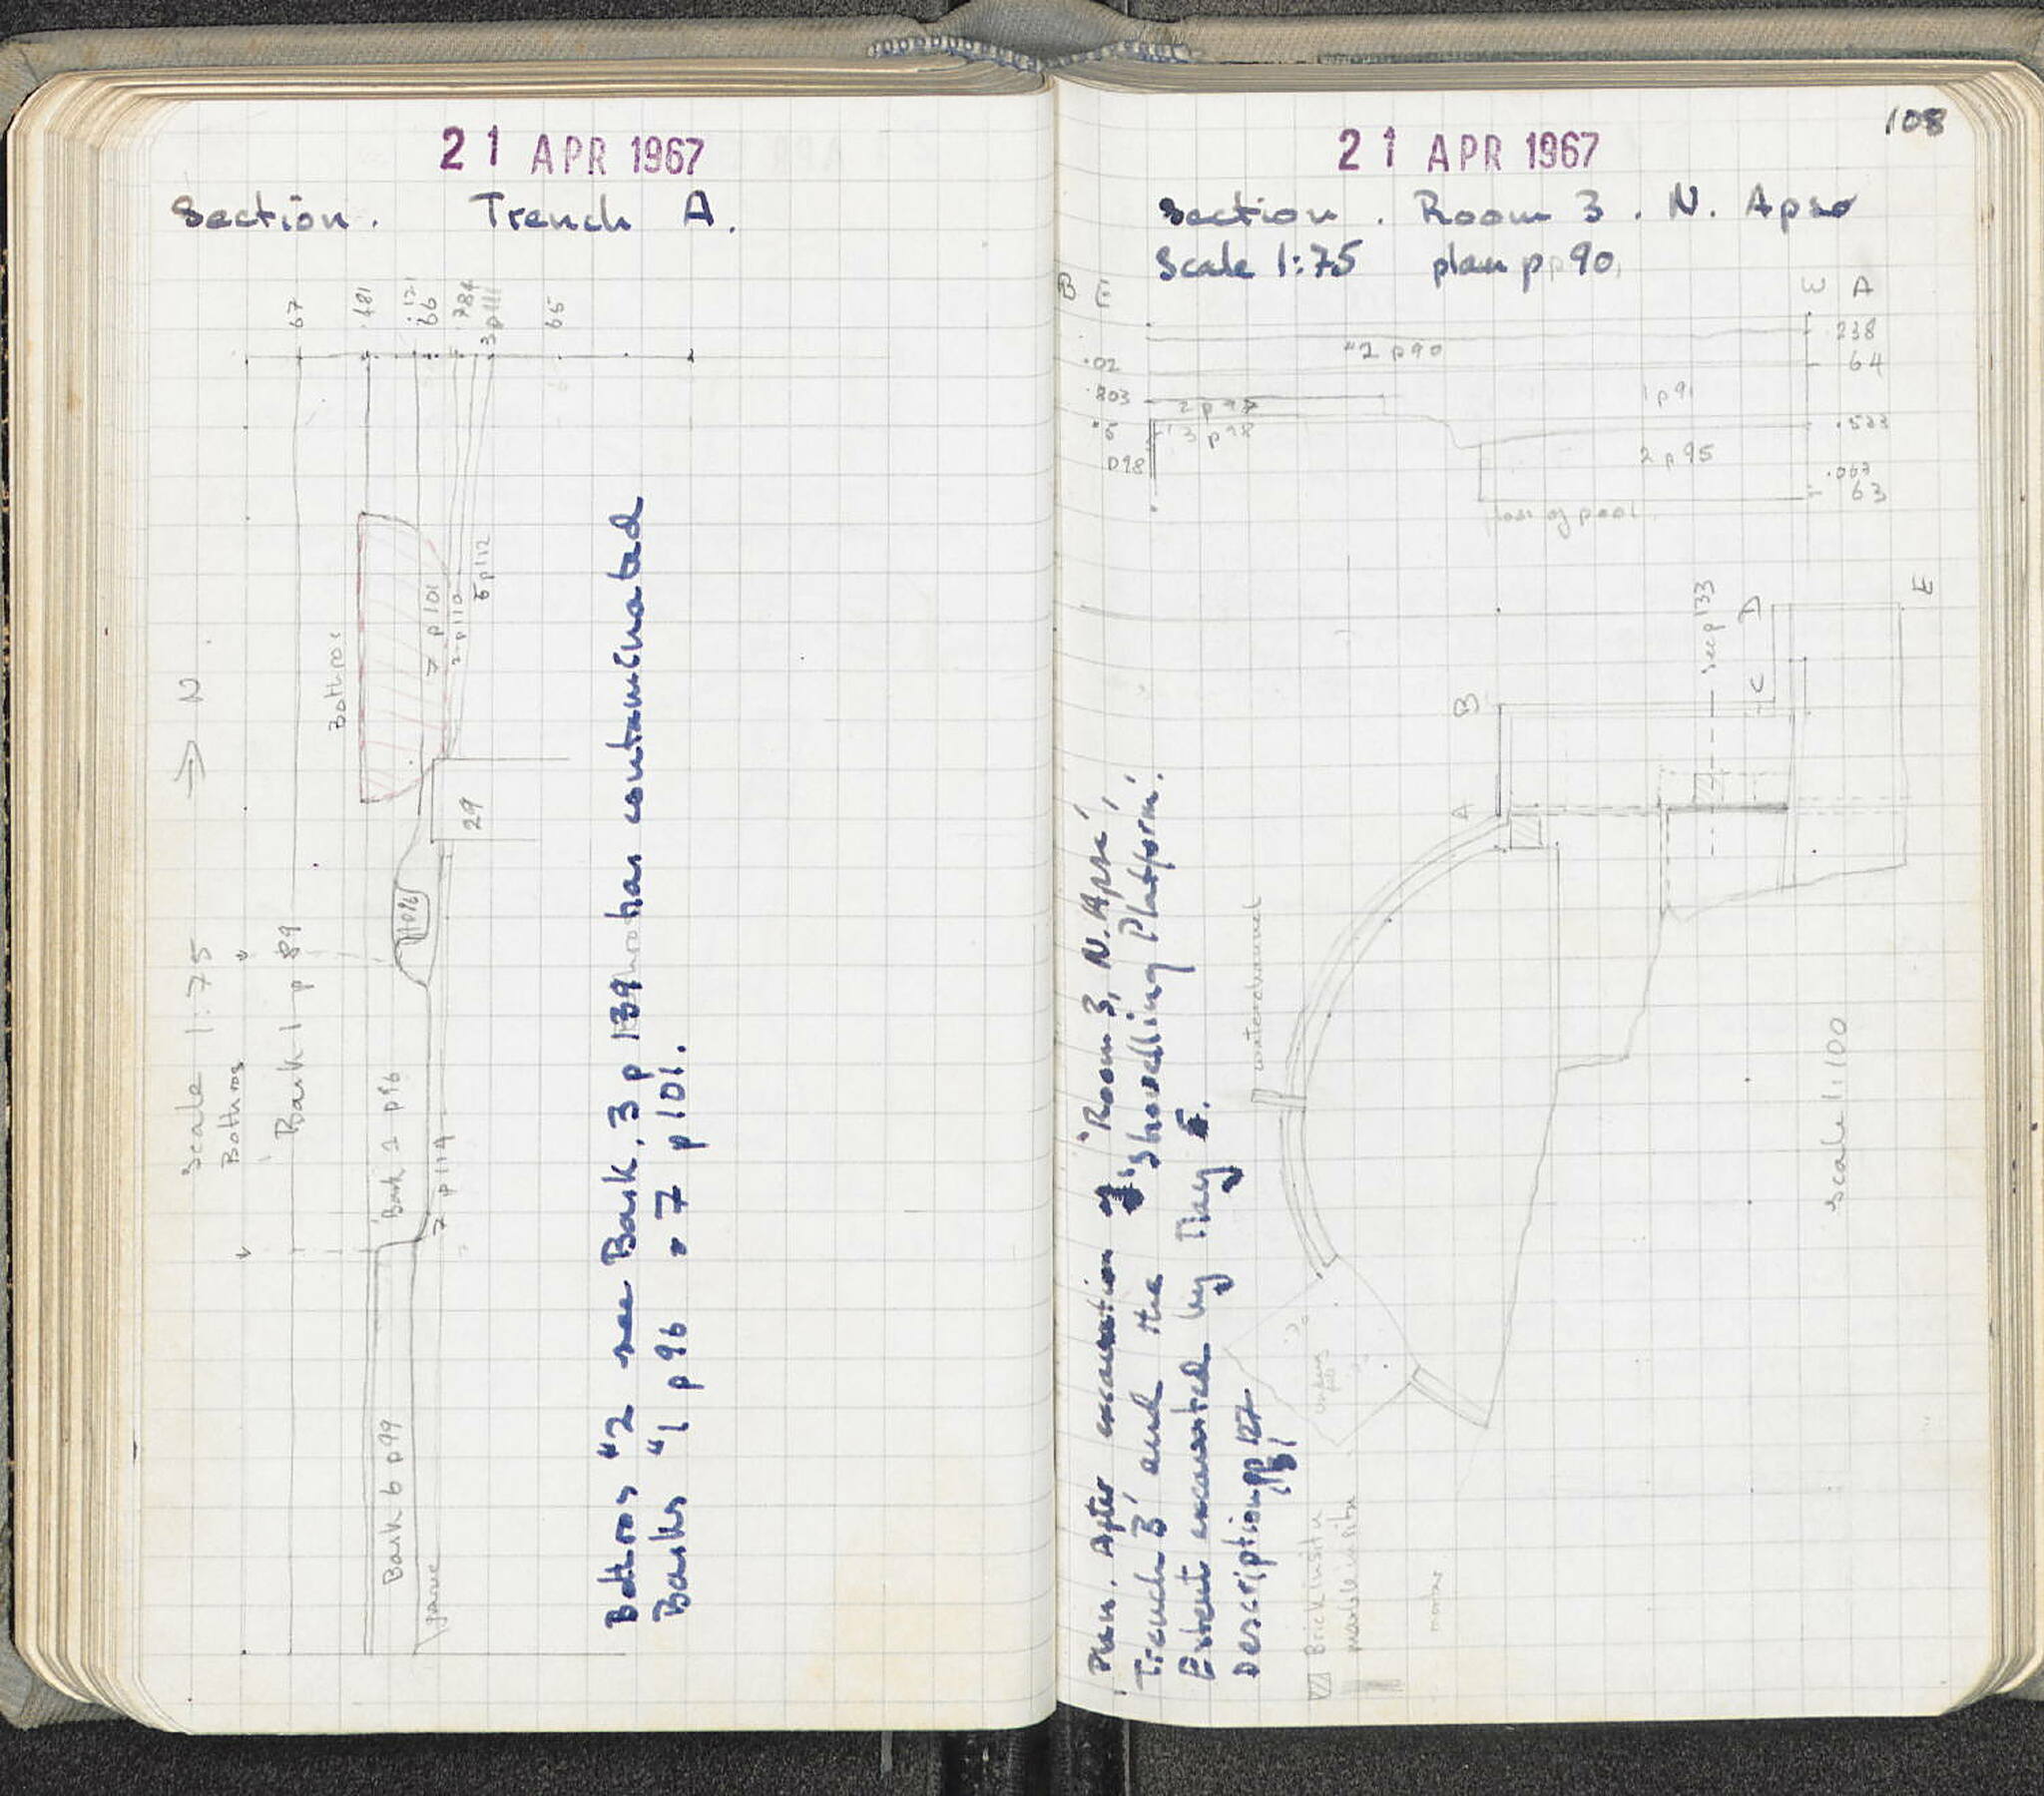 21 APR 1967
Section. Trench A.
67
.481
.121
66
.784
3 p111
65
→ N
Scale 1:75
Bothros
Bothros
Bank 1 p 89
7 p 101
2 p110
5 p112
29
Bank 1 p96
7 p114
Bank 6 p99
Bothros "2 see Bank. 3 p 139 has contaminated
Banks "1 p 96 " 7 p 101.
108
21 APR 1967
Section. Room 3. N. Apse
Scale 1:75 plan pp 90,
B E
W A
.238
"2 p90
.02
64
.803
1 p91
2 p 97
"5
3 p98
.523
2 p 95
D98
.063
63
floor of pool
E
see p133
D
C
B
A
waterchannel
Scale 1:100
Plan. After excavation of 'Room 3, N. Apse',
'Trench B' and the 'Shovelling Platform'.
Extent excavated by May 5.
Description pp 127
131
Brick in situ
marble in situ
mortar